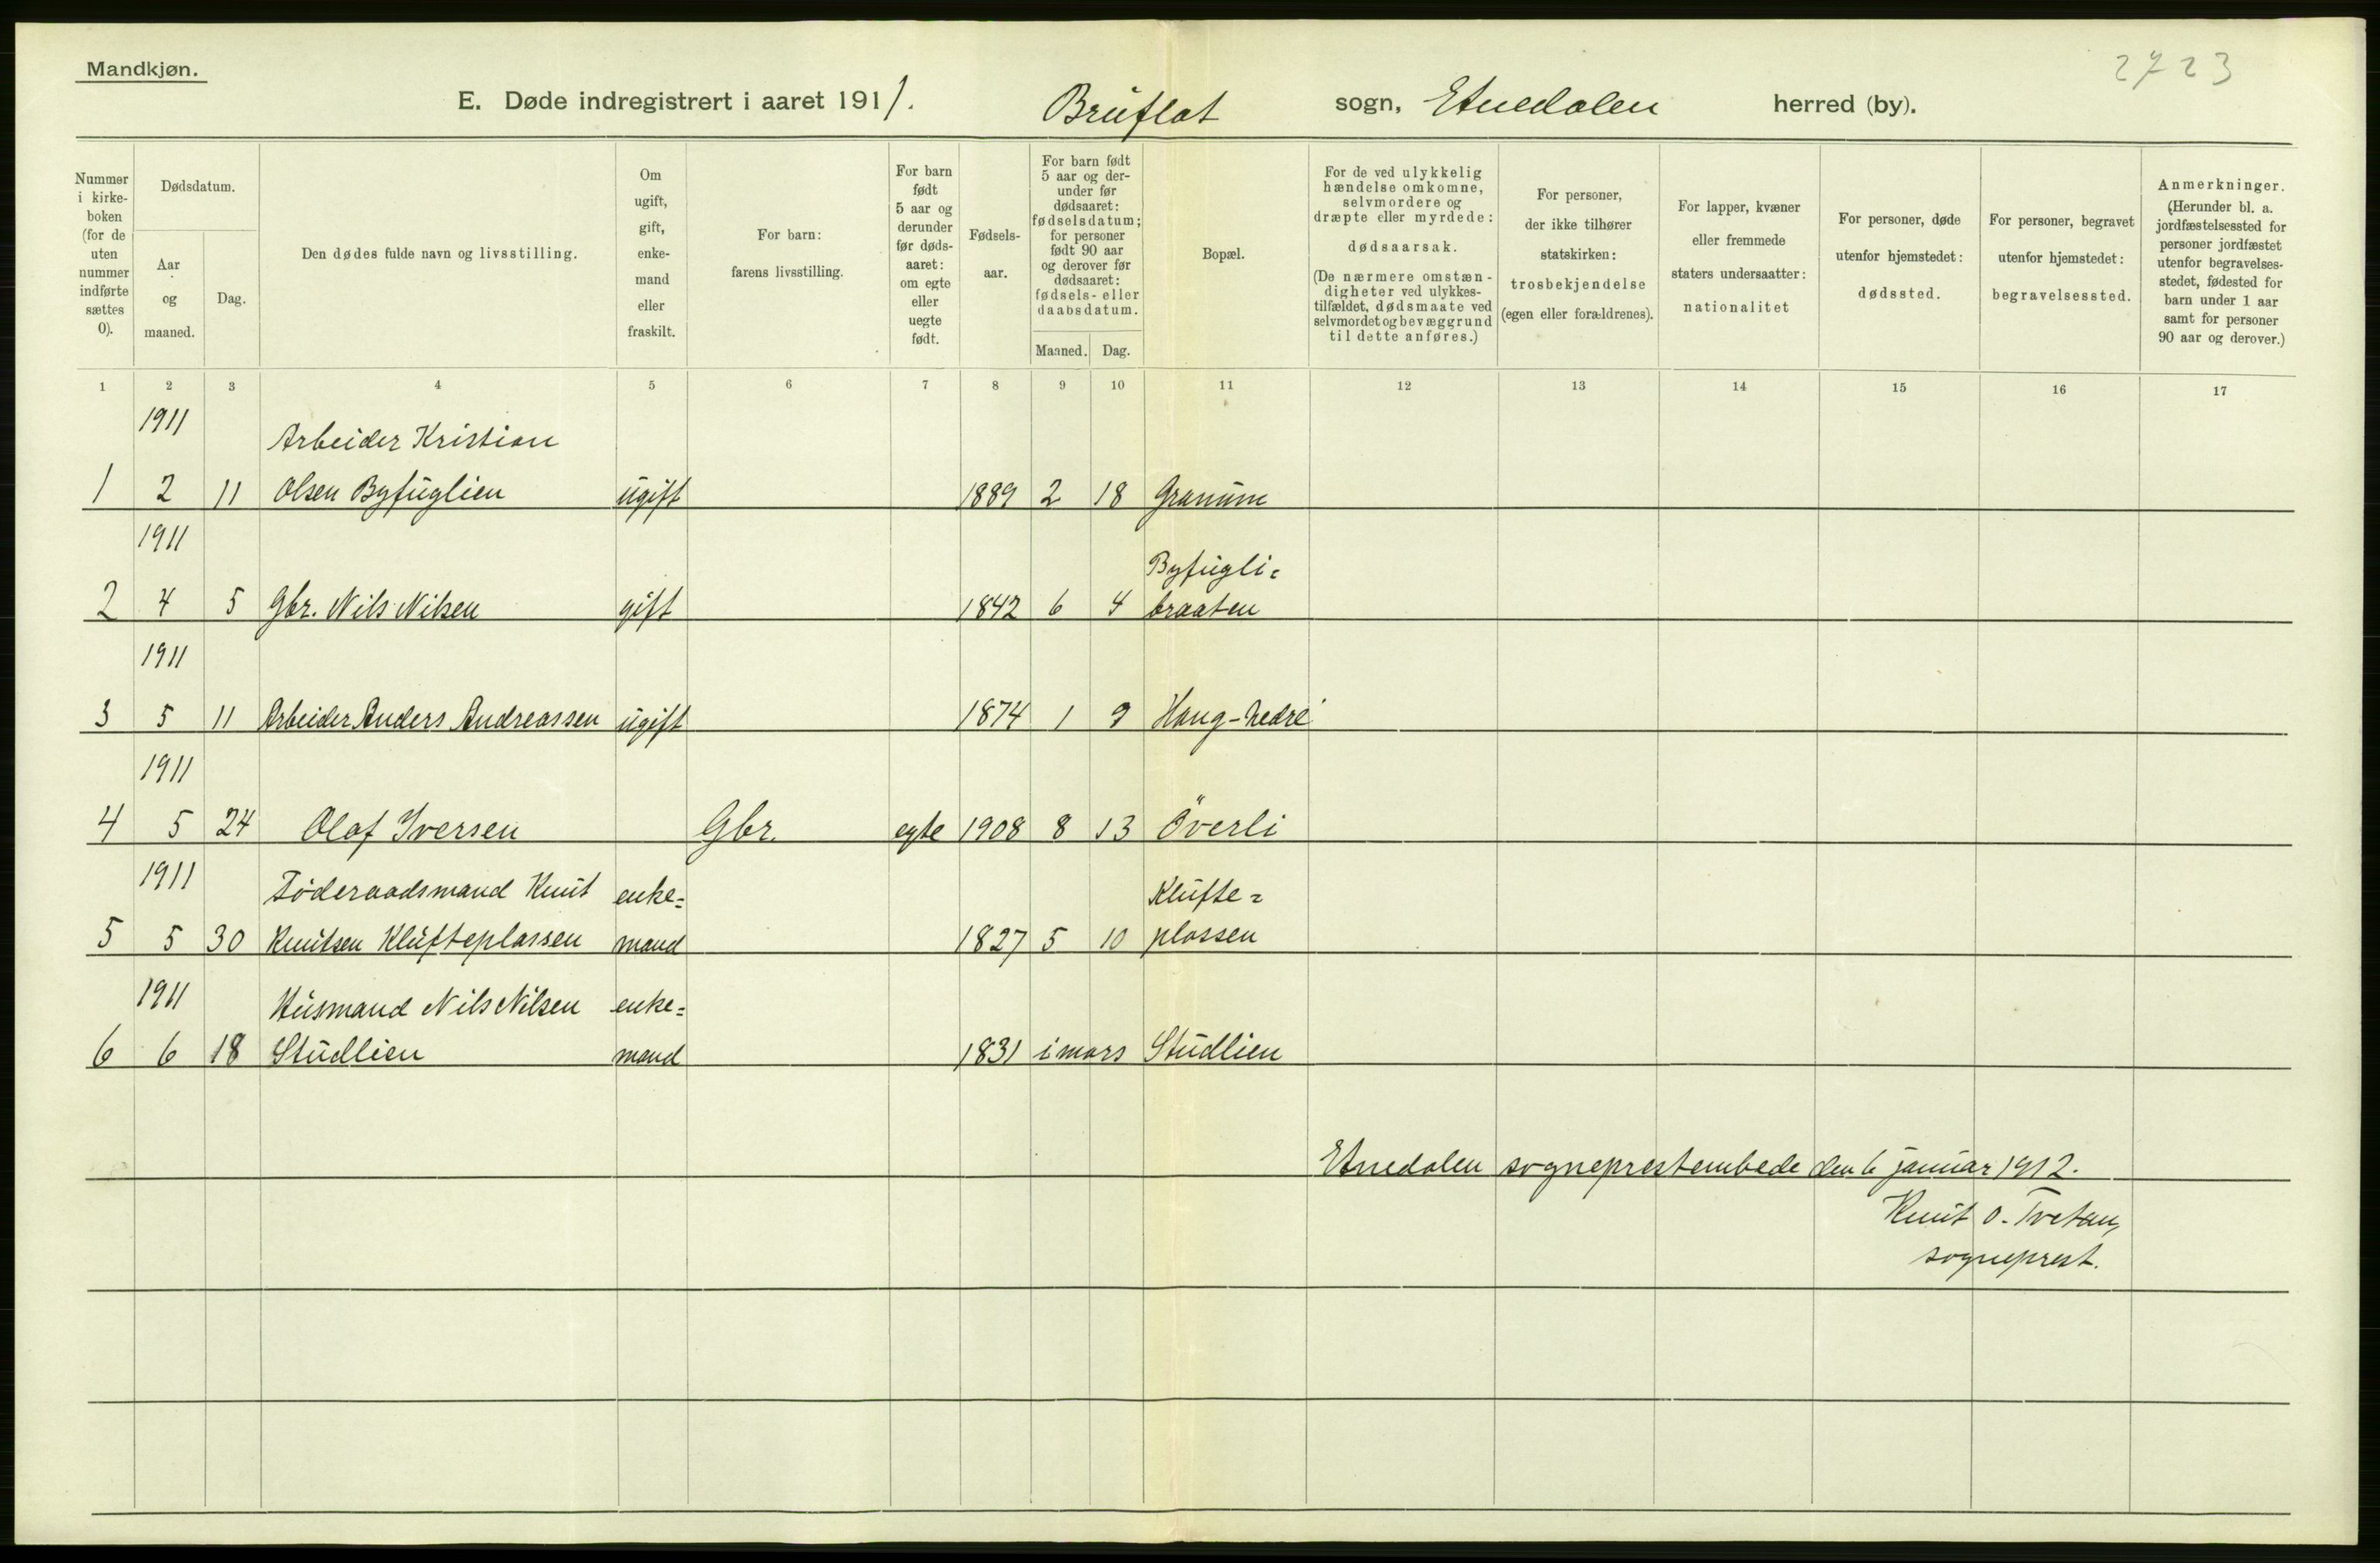 Mandkjøn.
2723
E. Døde indregistrert i aaret 1911. Bruflat sogn, Etnedalen herred (by).
Nummer i kirke- boken (for de uten nummer indførte sættes 0).
Dødsdatum.
Aar og maaned.
Dag.
Den dødes fulde navn og livsstilling.
Om ugift, gift, enke- mand eller fraskilt.
For barn: farens livsstilling.
For barn født 5 aar og derunder før døds- aaret: om egte eller uegte født.
Fødsels- aar.
For barn født 5 aar og der- under før dødsaaret: fødselsdatum; for personer født 90 aar og derover før dødsaaret: fødsels- eller daabsdatum.
Maaned. Dag.
Bopæl.
For de ved ulykkelig hændelse omkomne, selvmordere og dræpte eller myrdede: dødsaarsak. (De nærmere omstæn- digheter ved ulykkes- tilfældet, dødsmaate ved selvmordet og bevæggrund til dette anføres.)
For personer, der ikke tilhører statskirken: trosbekjendelse (egen eller forældrenes).
For lapper, kvæner eller fremmede staters undersaatter: nationalitet
For personer, døde utenfor hjemstedet: dødssted.
For personer, begravet utenfor hjemstedet: begravelsessted.
Anmerkninger. (Herunder bl. a. jordfæstelsessted for personer jordfæstet utenfor begravelses- stedet, fødested for barn under 1 aar samt for personer 90 aar og derover.)
1 2 3 4 5 6 7 8 9 10 11 12 13 14 15 16 17
1911 Arbeider Kristian
1 2 11 Olsen Byfuglien ugift 1889 2 18 Granum
1911 Byfugli=
2 4 5 Gbr. Nils Nilsen gift 1842 6 4 braaten
1911
3 5 11 Arbeider Anders Andreassen ugift 1874 1 9 Haug-nedre
1911
4 5 24 Olaf Iversen Gbr. egte 1908 8 13 Överli
1911 Föderaadsmand Knut enke= Klufte=
5 5 30 Knutsen Klufteplassen mand 1827 5 10 plassen
1911 Husmand Nils Nilsen enke=
6 6 18 Studlien mand 1831 i mars Studlien
Etnedalen sogneprestembede den 6 januar 1912.
Knut O. Tvetan,
sogneprest.